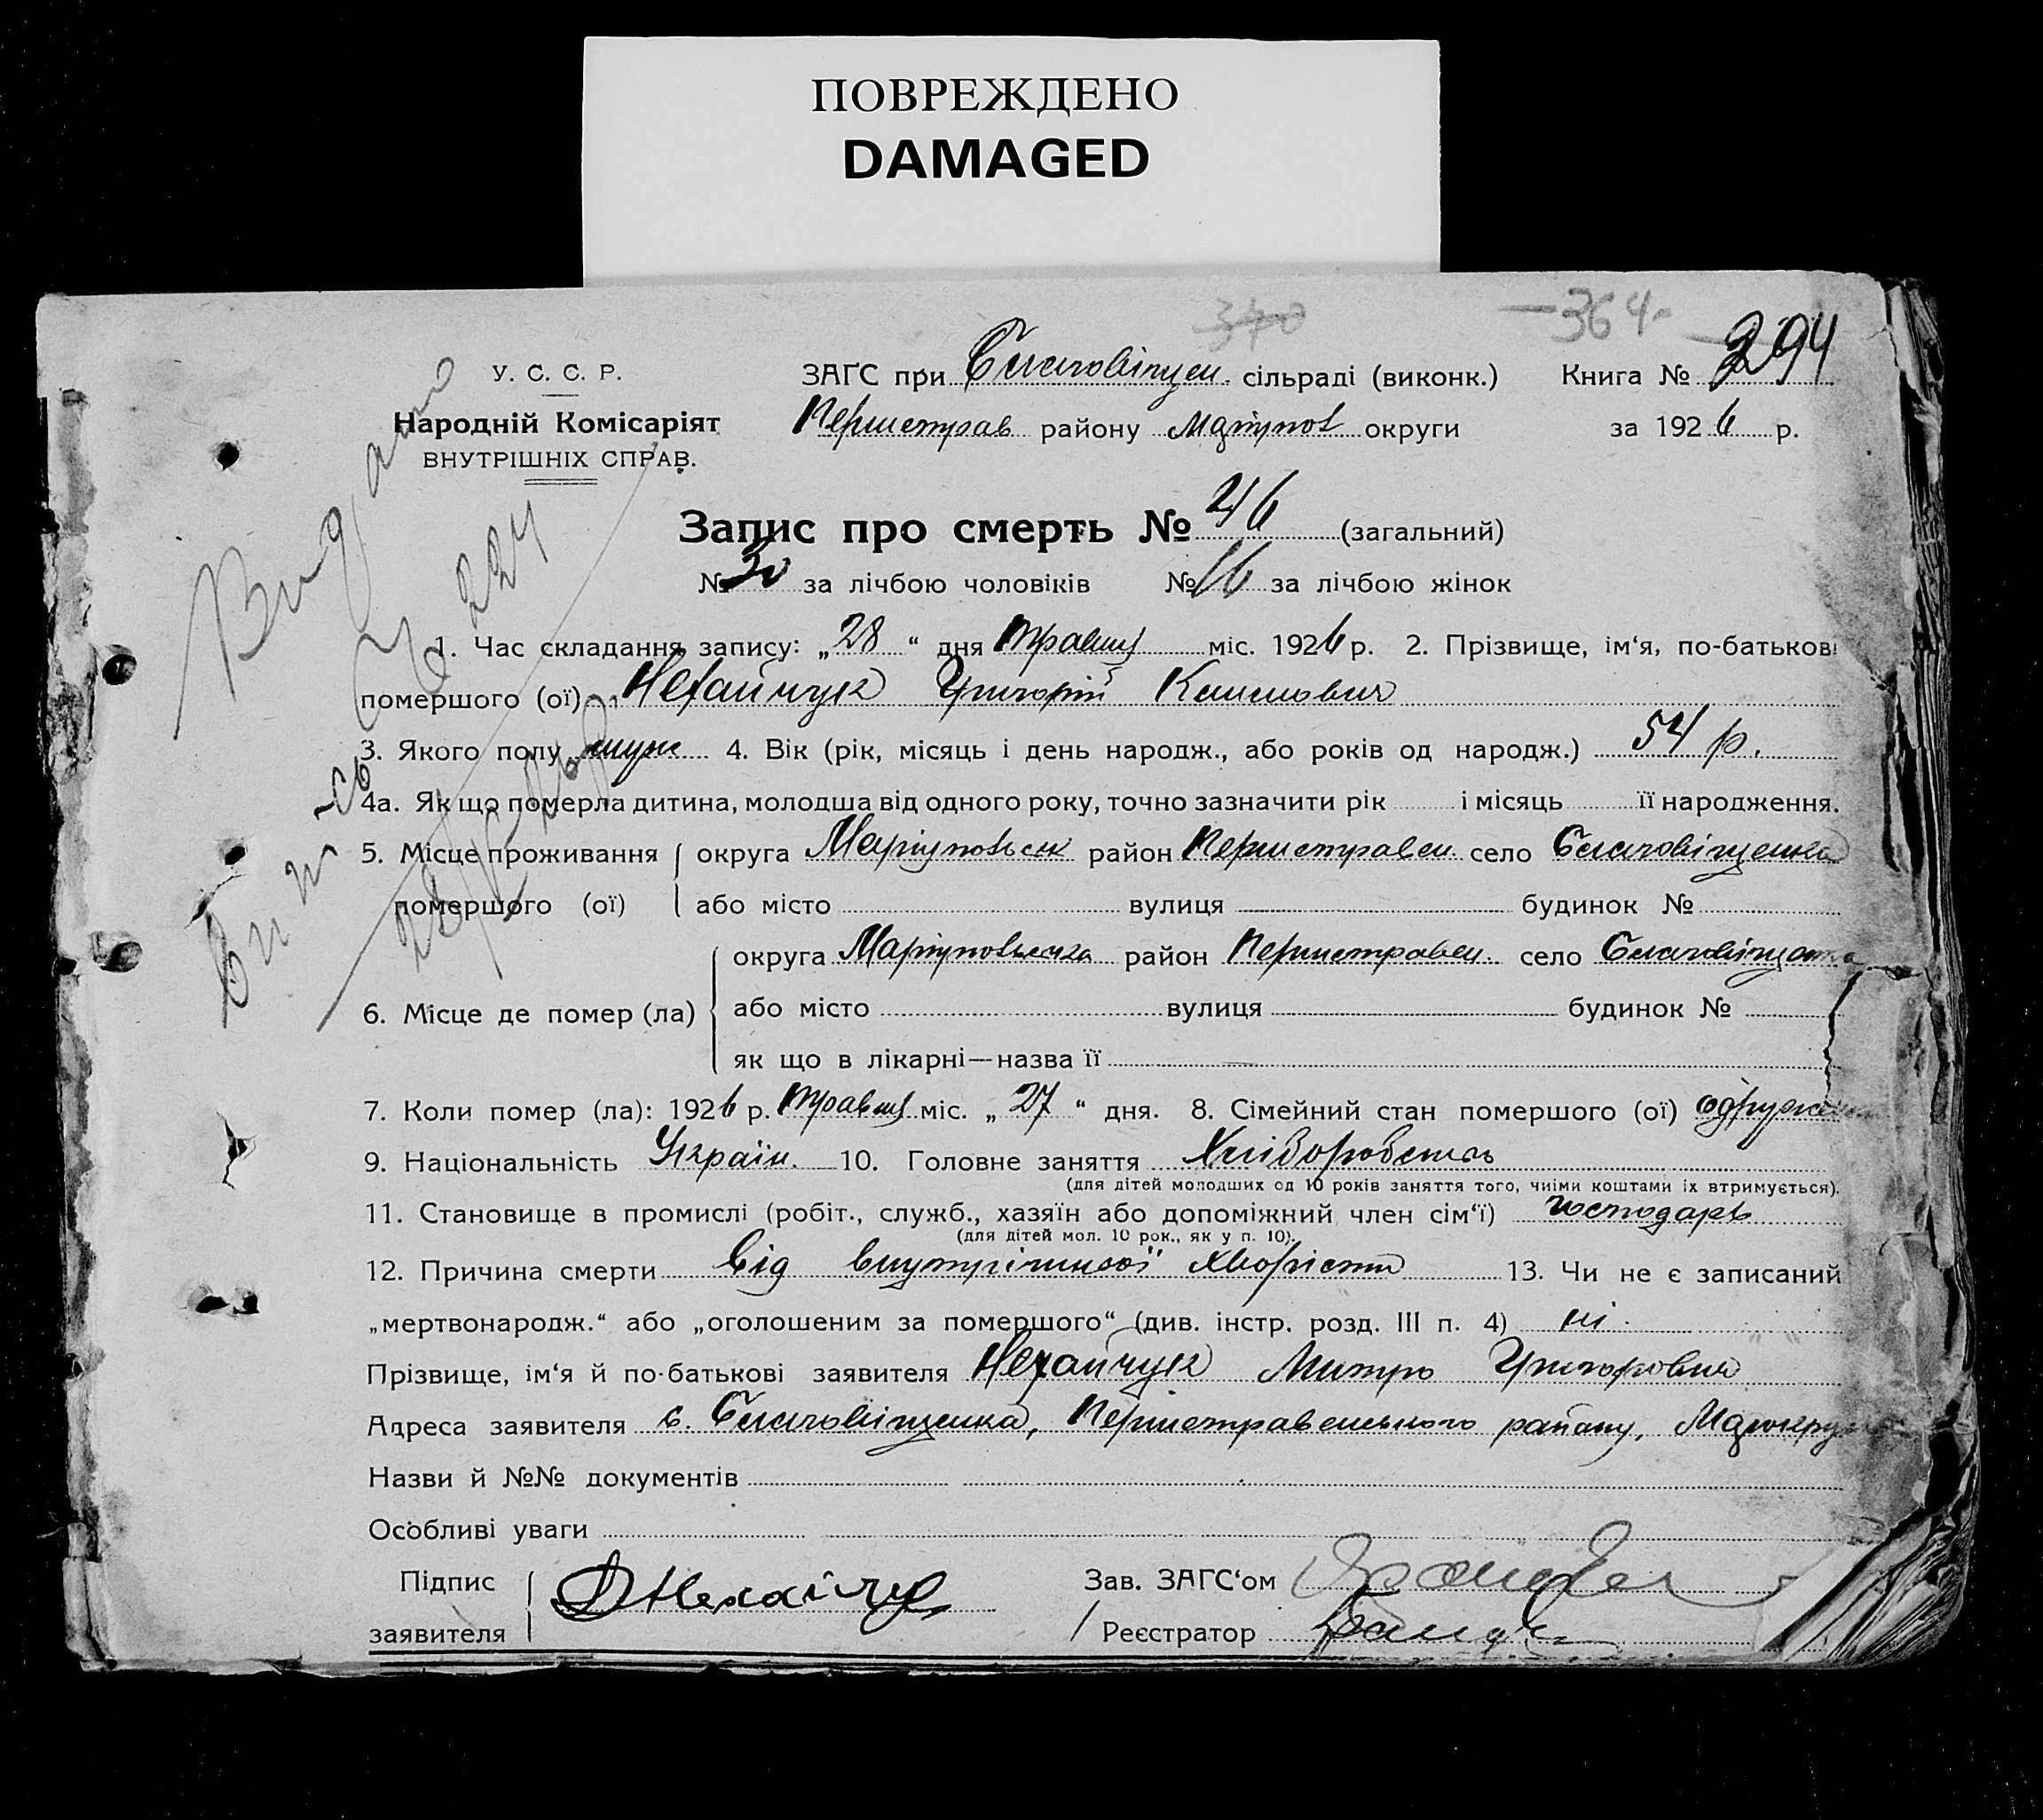 ПОВРЕЖДЕНО
DAMAGED
370
—364—
У. С. С. Р.
Народній Комісаріят
ВНУТРІШНІХ СПРАВ.
ЗАҐС при Благовіщен. сільраді (виконк.) Книга № 294
Першотрав району Маріупол округи за 1926 р.
Запис про смерть № 46 (загальний)
№ 30 за лічбою чоловіків № 16 за лічбою жінок
1. Час складання запису: „28“ дня Травня міс. 1926 р. 2. Прізвище, ім‘я, по-батькові
помершого (ої) Нехайчук Григорій
3. Якого полу муж 4. Вік (рік, місяць і день народж., або років од народж.) 54 р.
4а. Як що померла дитина, молодша від одного року, точно зазначити рік і місяць її народження.
5. Місце проживання округа Маріупольськ район Першотравен. село Благовіщенка
помершого (ої) або місто вулиця будинок №
округа Маріупольська район Першотравен. село Благовіщенка
6. Місце де помер (ла) або місто вулиця будинок №
як що в лікарні—назва її
7. Коли помер (ла): 1926 р. Травня міс. „27“ дня. 8. Сімейний стан помершого (ої)
9. Національність Україн. 10. Головне заняття Хліборобство
(для дітей молодших од 10 років заняття того, чиїми коштами їх втримується).
11. Становище в промислі (робіт., служб., хазяїн або допоміжний член сім‘ї) господарь
(для дітей мол. 10 рок., як у п. 10).
12. Причина смерти від внутрішньої 13. Чи не є записаний
„мертвонародж.“ або „оголошеним за помершого“ (див. інстр. розд. III п. 4) ні.
Прізвище, ім‘я й по-батькові заявителя Нехайчук Митро Григорович
Адреса заявителя с. Благовіщенка, Першотравенського району,
Назви й №№ документів
Особливі уваги
Підпис
заявителя Д Нехайчук
Зав. ЗАҐС‘ом
Реєстратор